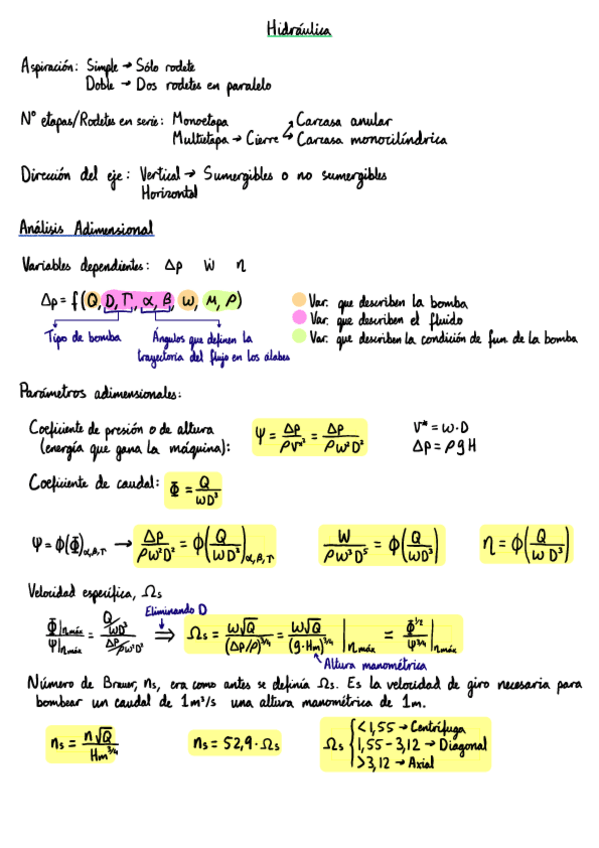 Hidráulica
Aspiración: Simple → Sólo rodete
Doble → Dos rodetes en paralelo
Nº etapas/Rodetes en serie: Monoetapa
Multietapa → Cierre → Carcasa anular
→ Carcasa monocilíndrica
Dirección del eje: Vertical → Sumergibles o no sumergibles
Horizontal
Análisis Adimensional
Variables dependientes: Δp Ẇ η
Δp = f(Q, D, T, α, β, ω, μ, ρ)
Var. que describen la bomba
Var. que describen el fluido
Var. que describen la condición de fun. de la bomba
Tipo de bomba
Ángulos que definen la
trayectoria del flujo en los álabes
Parámetros adimensionales:
Coeficiente de presión o de altura
(energía que gana la máquina):
Ψ = Δp/ρV*² = Δp/ρω²D²
V* = ω·D
Δp = ρgH
Coeficiente de caudal: Φ = Q/ωD³
Ψ = ϕ(Φ)α,β,T → Δp/ρω²D² = ϕ(Q/ωD³)α,β,T
W/ρω³D⁵ = ϕ(Q/ωD³)
η = ϕ(Q/ωD³)
Velocidad específica, Ωs
Eliminando D
Φ|ηmáx/Ψ|ηmáx = (Q/ωD³)/(Δp/ρω²D²) ⇒ Ωs = ω√Q/(Δp/ρ)^3/4 = ω√Q/(g·Hm)^3/4|ηmáx = Φ^1/2/Ψ^3/4|ηmáx
Altura manométrica
Número de Brauer, ns, era como antes se definía Ωs. Es la velocidad de giro necesaria para
bombear un caudal de 1m³/s una altura manométrica de 1m.
ns = n√Q/Hm^3/4
ns = 52,9·Ωs
Ωs { <1,55 → Centrífuga
1,55 - 3,12 → Diagonal
>3,12 → Axial